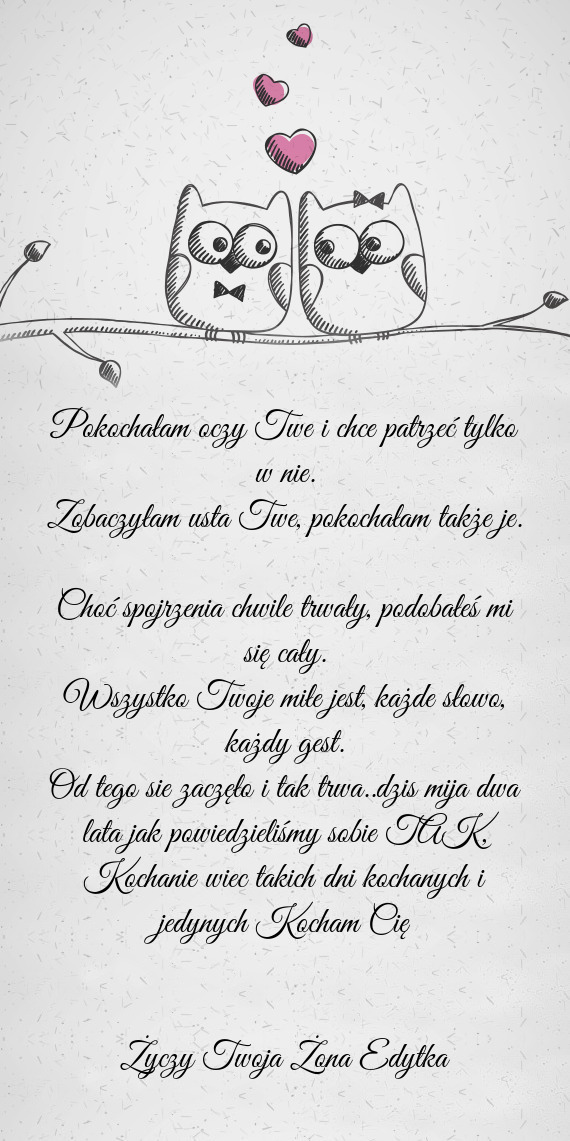 Pokochałam oczy Twe i chce patrzeć tylko
w nie.
Zobaczyłam usta Twe, pokochałam także je.
Choć spojrzenia chwile trwały, podobałeś mi
się cały.
Wszystko Twoje miłe jest, każde słowo,
każdy gest.
Od tego sie zaczęło i tak trwa..dzis mija dwa
lata jak powiedzieliśmy sobie TAK,
Kochanie wiec takich dni kochanych i
jedynych Kocham Cię
Życzy Twoja Żona Edytka